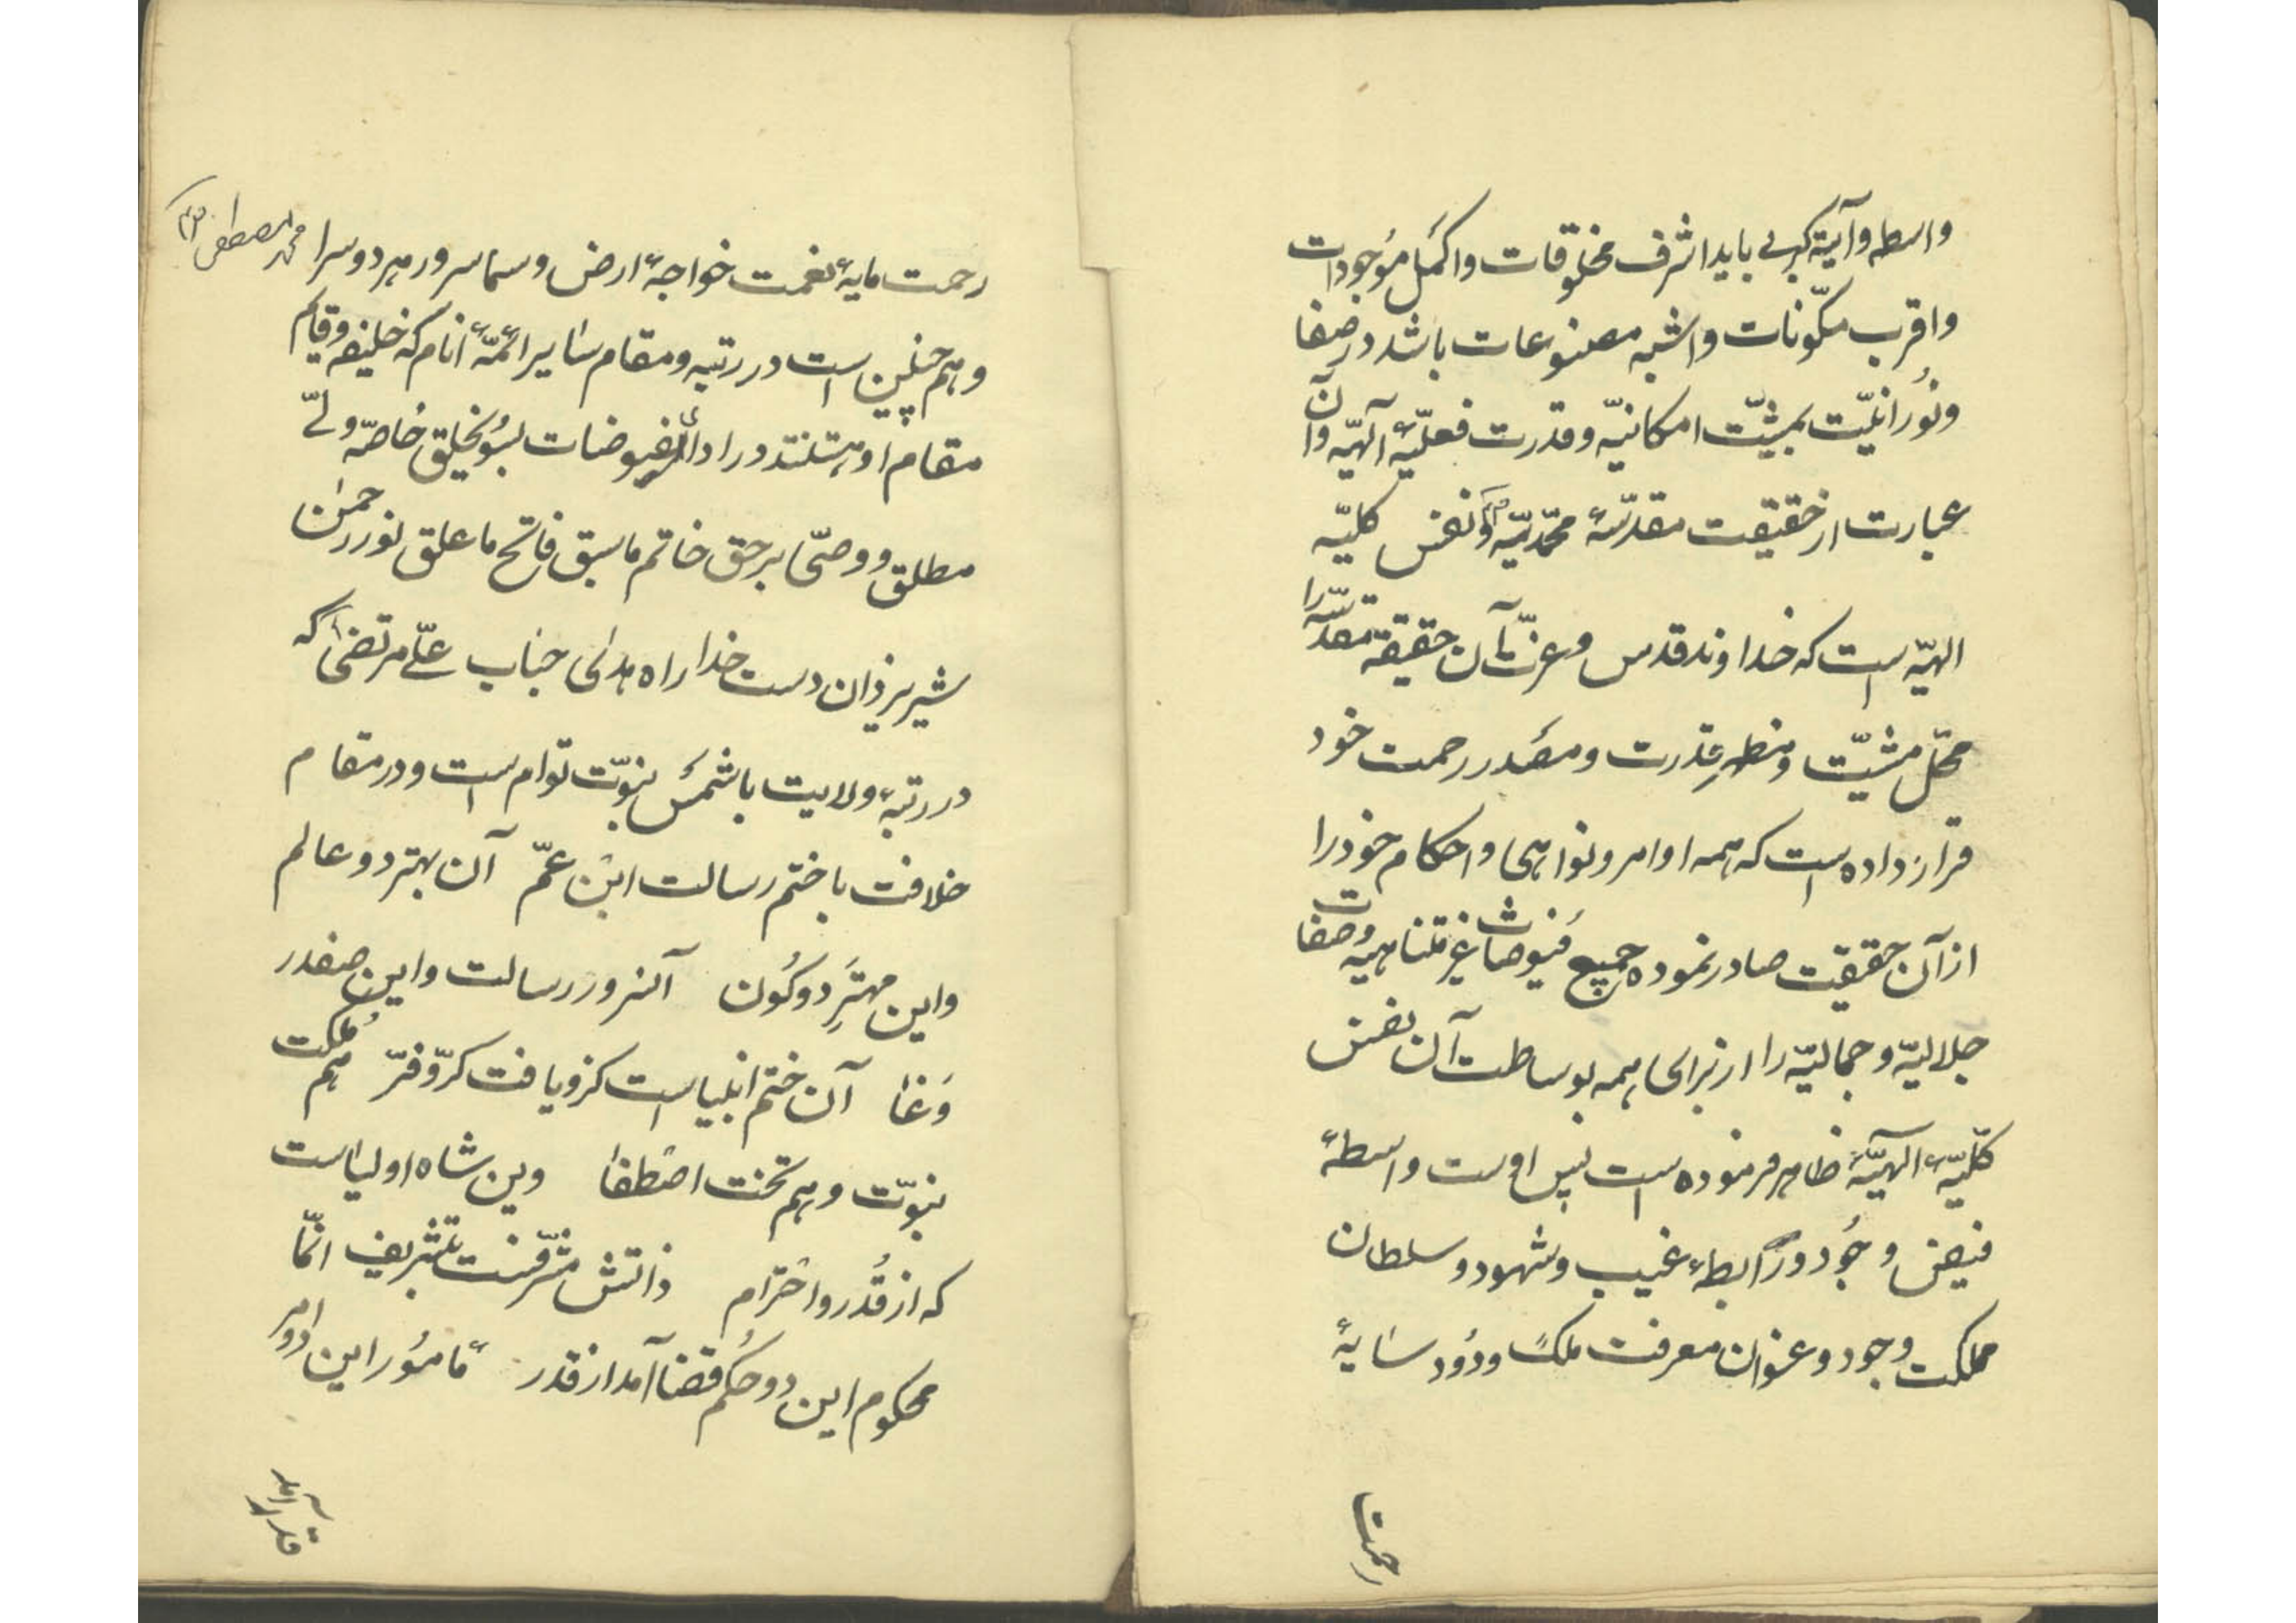 واسطه و آیة کبری باید اشرف مخلوقات و اکمل موجودات
و اقرب مکوّنات و اشبه مصنوعات باشد در صفا
و نُورانیّت بمشیّت امکانیّه و قدرت فعلیّهٔ آلهیّه و آن
عبارت از حقیقت مقدّسهٔ محمّدیّه و نفس کلیّه
الهیّه است که خداوند قدس و عزّت آن حقیقة مقدّسه را
محلّ مشیّت و مظهرِ قدرت و مصدر رحمت خود
قرار داده است که همه اوامر و نواهی و احکام خود را
از آن حقیقت صادر نموده جمیع فیوضات غیر متناهیه و صفات
جلالیّه و جمالیّه را از برای همه بوساطت آن نفس
کلّیّهٔ الهیّهٔ ظاهر فرموده است پس اوست واسطهٔ
فیض وجُود و رابطهٔ غیب و شهود و سلطان
مملکت وجود و عنوان معرفت ملک ودُود سایهٔ
رحمت
رحمت مایهٔ نعمت خواجهٔ ارض و سما سرور هر دو سرا محمد مصطفی
و هم چنین است در رتبه و مقام سایر ائمّهٔ انام که خلیفه و قایم
مقام او هستند در ادای فیوضات بسُو بخلق خاصّه ولیّ
مطلق و وصیّ بر حق خاتم ما سبق فاتح ما غلق نور رحمن
شیر یزدان دست خدا راه هدی جناب علیّ مرتضی که
در رتبهٔ ولایت با شمس نبوّت توام است و در مقام
خلافت با ختم رسالت ابن عمّ آن بهتر دو عالم
و این مهترِ دو کَون آن سرور رسالت و این صفدر
وَغا آن ختم انبیاست کزو یافت کرّ و فرّ هم مُلکت
نبوّت و هم تخت اصطفا وین شاه اولیاست
که از قَدر و احترام ذاتش مشرّفست بتشریف انّما
محکوم این دو حُکم قضا آمد از قدر مأمُور این دو امر
قدر آمد